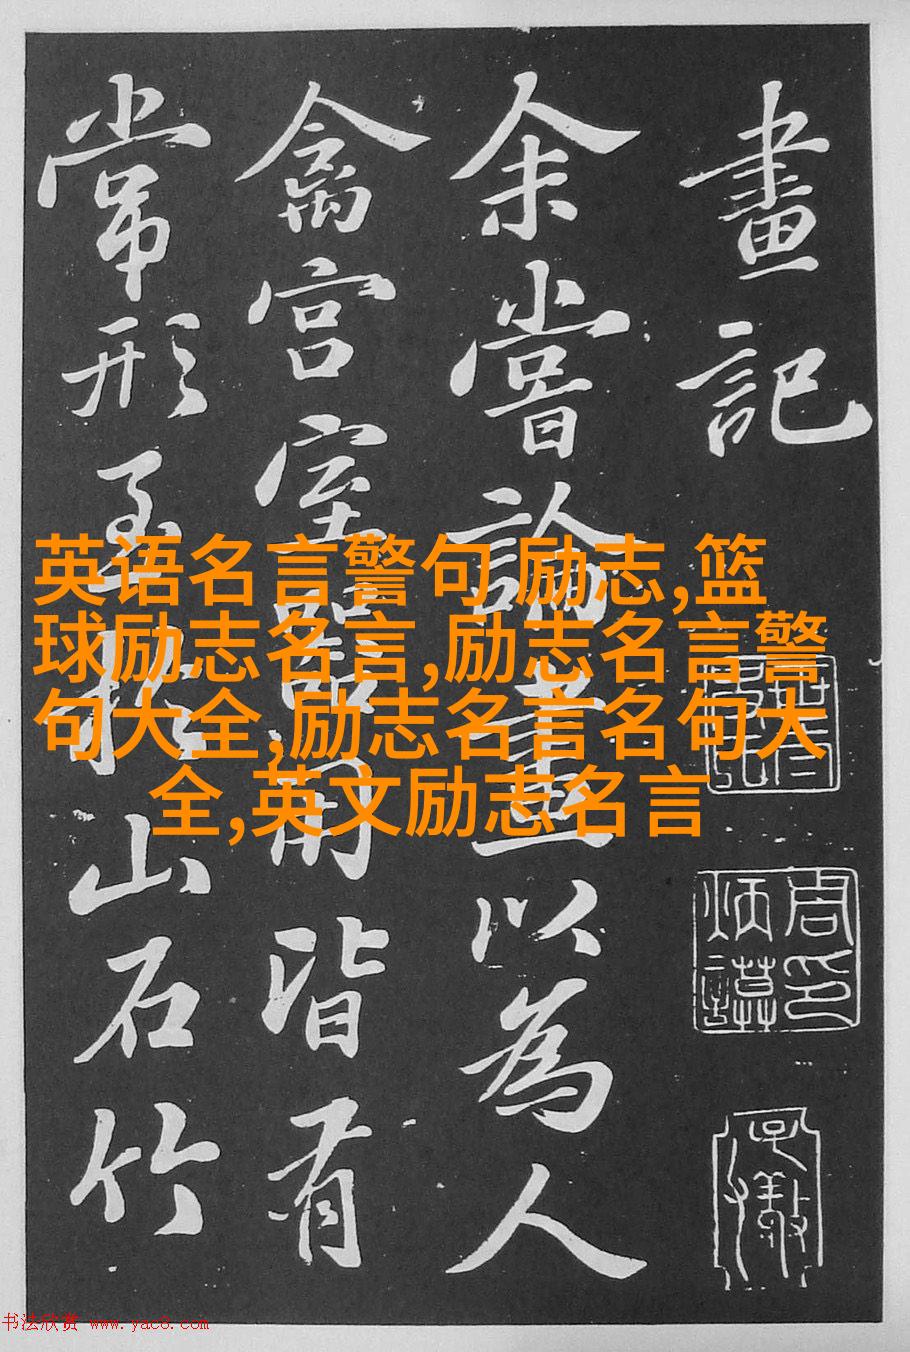 畫記
余嘗論畫以為人
禽宮室器用皆有
常形至於山石竹
英语名言警句 励志,篮
球励志名言,励志名言警
句大全,励志名言名句大
全,英文励志名言
书法欣赏 www.yac8.com